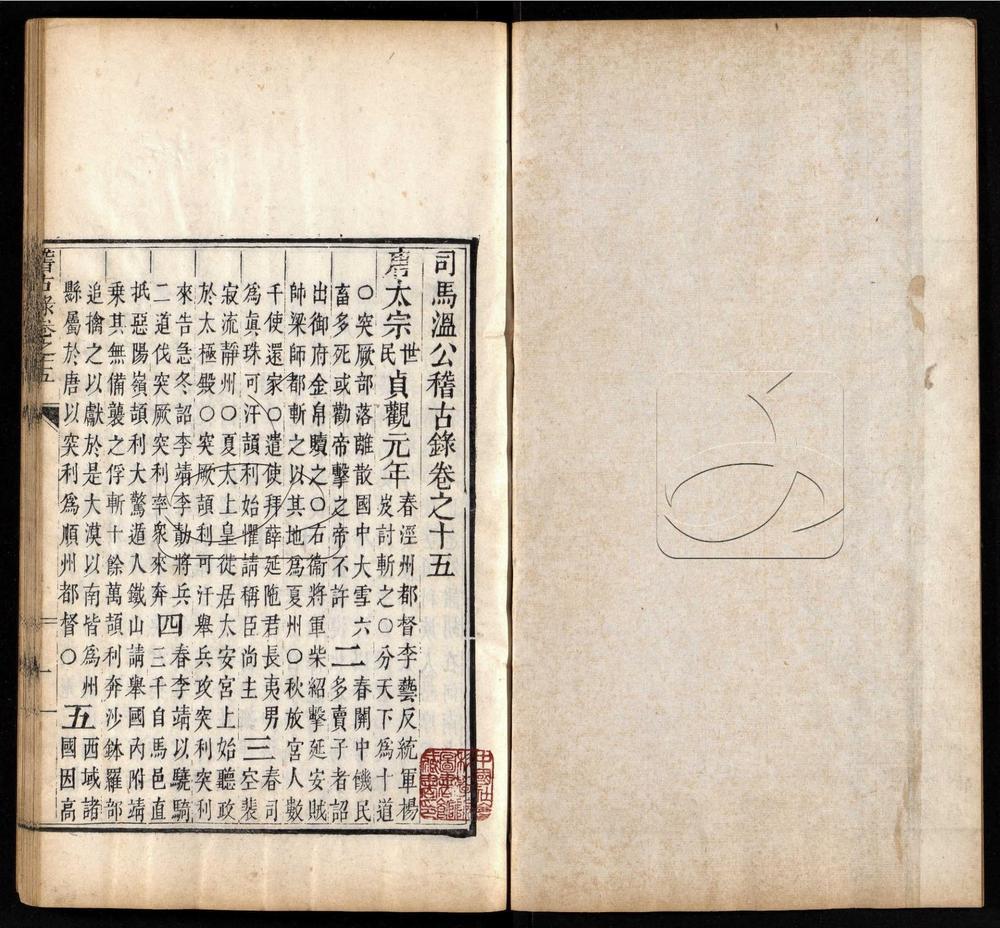 司馬溫公稽古錄卷之十五
唐太宗世民貞觀元年
春涇州都督李藝反統軍楊
岌討斬之〇分天下爲十道
〇突厥部落離散國中大雪六
畜多死或勸帝擊之帝不許
二
春關中饑民
多賣子者詔
出御府金帛贖之〇右衞將軍柴紹擊延安賊
師梁師都斬之以其地爲夏州〇秋放宮人數
千使還家〇遣使拜薛延陁君長夷男
爲眞珠可汗頡利始懼請稱臣尚主
三
春司
空裴
寂流靜州〇夏太上皇徙居太安宮上始聽政
於太極殿〇突厥頡利可汗舉兵攻突利突利
來告急冬詔李靖李勣將兵
二道伐突厥突利率衆來奔
四
春李靖以驍騎
三千自馬邑直
抵惡陽嶺頡利大驚遁入鐵山請舉國內附靖
乘其無備襲之俘斬十餘萬頡利奔沙鉢羅部
追擒之以獻於是大漠以南皆爲州
縣屬於唐以突利爲順州都督〇
五
西域諸
國因高
稽古錄卷之十五
一